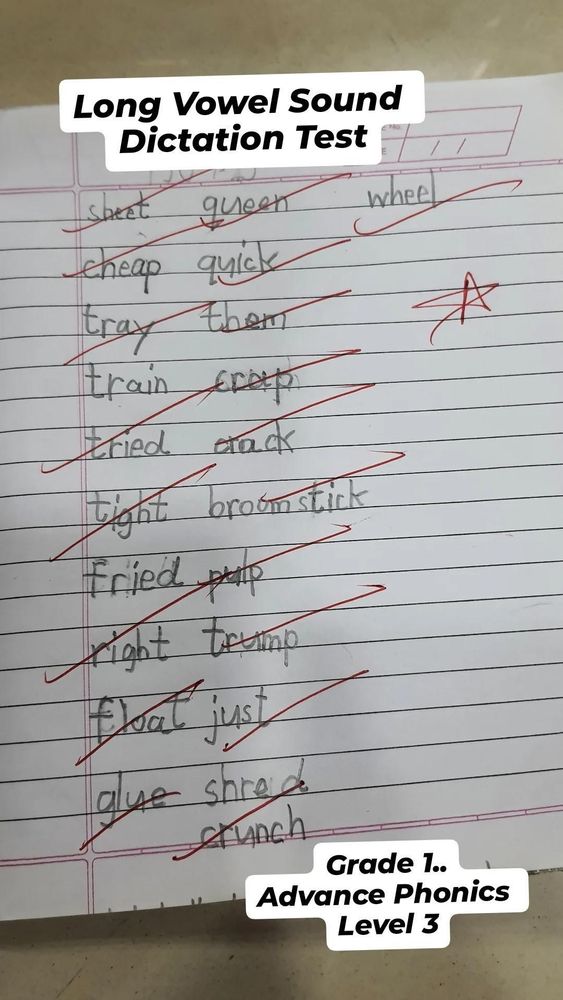 Long Vowel Sound
Dictation Test
sheet queen wheel
cheap quick
tray them
train creep
tried crack
tight broomstick
fried pulp
right trump
float just
glue shred
crunch
Grade 1..
Advance Phonics
Level 3